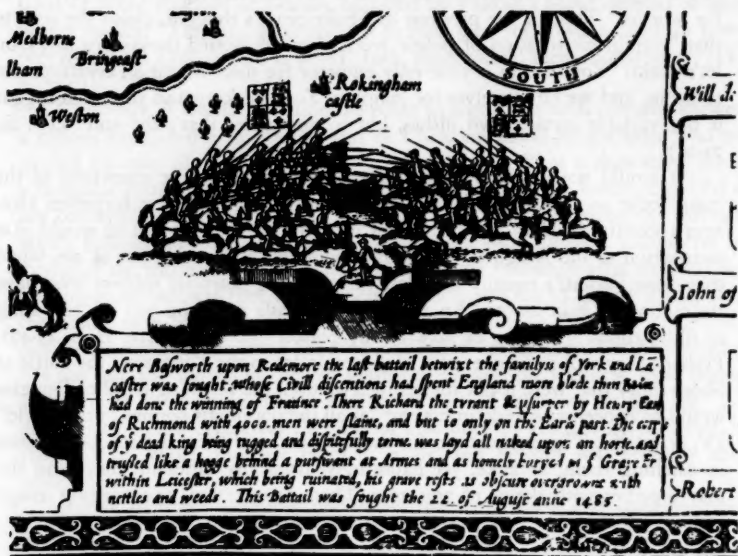 Medborne
lham
Bringeast
Weston
Rokingham
castle
SOUTH
Will d:
Iohn of
Robert
Nere Bosworth upon Redemore the last battail betwixt the familyss of York and Lā-
caster was fought, whose Civill discentions had spent England more blode then
had done the winning of Fraunce. There Richard the tyrant & vsurper by Henry Earl
of Richmond with 4000. men were slaine, and but 10 only on the Earls part. The corps
of ẏ dead king being tugged and dispitfully torne. was layd all naked upon an horse, and
trussed like a hogge behind a pursivant at Armes and as homely buryed in ẏ Gray Fr
within Leicester, which being ruinated, his grave rests as obscure overgrowne with
nettles and weeds. This Battail was fought the 22. of August anno 1485.